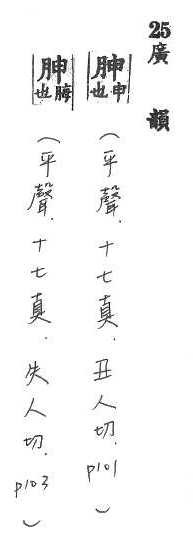 25廣韻
胂申也(平聲.十七真.丑人切.p101)
胂脢也(平聲.十七真.失人切.p103)